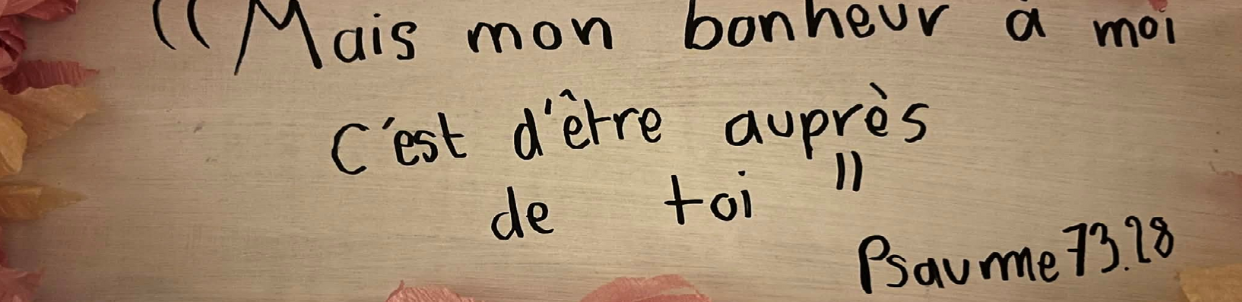 ((Mais mon bonheur à moi
C'est d'être auprès
de toi "
Psaume 73.28